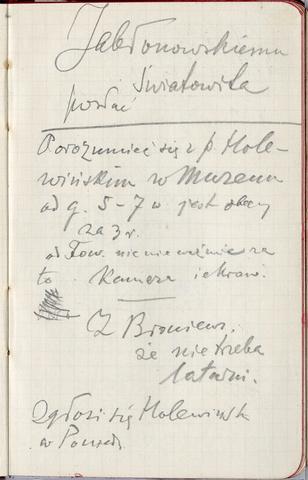 Jabłonowskiemu
Światowita
posłać
Porozumieć się z p. Hole-
wińskim w Muzeum
od g. 5-7 w. jest obecny
za 3 r.
od Tow. nie nie weźmie za
to Kamera i ekran.
Z Broniews.
że nie trzeba
latarni.
Zgłosi się Holewińsk
w Ponied.